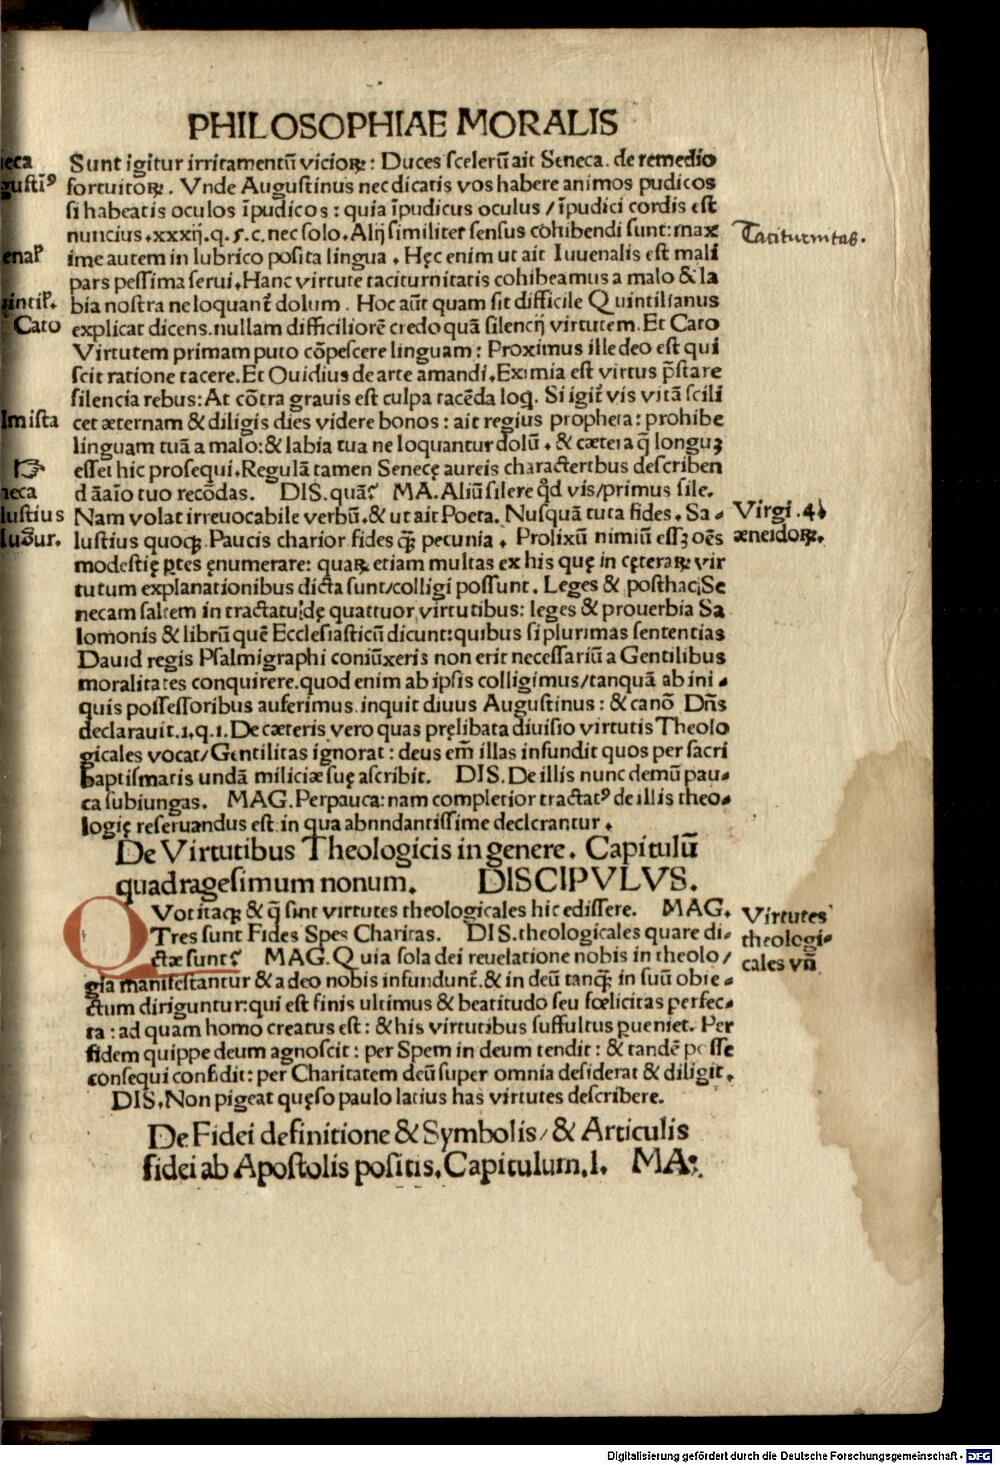 PHILOSOPHIAE MORALIS
Sunt igitur irritamentū vicioꝝ: Duces scelerū ait Seneca. de remedio
fortuitoꝝ. Vnde Augustinus nec dicatis vos habere animos pudicos
si habeatis oculos īpudicos: quia īpudicus oculus / īpudici cordis est
nuncius.xxxij.q.5.c.nec solo.Alij similiter sensus cohibendi sunt: max
ime autem in lubrico posita lingua. Hęc enim ut ait Iuuenalis est mali
pars pessima serui.Hanc virtute taciturnitatis cohibeamus a malo & la
bia nostra ne loquant̄ dolum. Hoc aūt quam sit difficile Quintilianus
explicat dicens.nullam difficiliorē credo quā silencij virtutem.Et Cato
Virtutem primam puto cōpescere linguam: Proximus ille deo est qui
scit ratione tacere.Et Ouidius de arte amandi.Eximia est virtus p̄stare
silencia rebus: At cōtra grauis est culpa tacēda loq̄. Si igit̄ vis vitā scili
cet æternam & diligis dies videre bonos: ait regius propheta: prohibe
linguam tuā a malo: & labia tua ne loquantur dolū. & cætera q̄ longuꝫ
esset hic prosequi.Regulā tamen Senecę aureis characteribus describen
dā aīo tuo recōdas. DIS.quā? MA.Aliū silere qd̄ vis/primus sile.
Nam volat irreuocabile verbū.& ut ait Poeta. Nusquā tuta fides. Sa-
lustius quoqꝫ Paucis charior fides qꝫ pecunia. Prolixū nimiū essꝫ oēs
modestię ꝑtes ęnumerare: quaꝝ etiam multas ex his quę in cęteraꝝ vir
tutum explanationibus dicta sunt/colligi possunt. Leges & posthac: Se
necam saltem in tractatu: dę quattuor virtutibus: leges & prouerbia Sa
lomonis & librū quē Ecclesiasticū dicunt: quibus si plurimas sententias
Dauid regis Psalmigraphi coniūxeris non erit necessariū a Gentilibus
moralitates conquirere.quod enim ab ipsis colligimus/tanquā ab ini-
quis possessoribus auferimus.inquit diuus Augustinus: & canō Dn̄s
declarauit.1.q.1.De cæteris vero quas pręlibata diuisio virtutis Theolo
gicales vocat/Gentilitas ignorat: deus em̄ illas infundit quos per sacri
baptismatis undā miliciæ suę ascribit. DIS.De illis nunc demū pau-
ca subiungas. MAG.Perpauca: nam completior tractatꝰ de illis theo-
logię reseruandus est.in qua abnndantissime declcrantur.
De Virtutibus Theologicis in genere. Capitulū
quadragesimum nonum. DISCIPVLVS.
QVot itaqꝫ & q̄ sint virtutes theologicales hic edissere. MAG.
Tres sunt Fides Spes Charitas. DIS.theologicales quare di-
ctæ sunt? MAG.Quia sola dei reuelatione nobis in theolo/
gia manifestantur & a deo nobis infundunt̄.& in deū tanqꝫ in suū obie-
ctum diriguntur: qui est finis ultimus & beatitudo seu fœlicitas perfec-
ta: ad quam homo creatus est: & his virtutibus suffultus ꝑueniet. Per
fidem quippe deum agnoscit: per Spem in deum tendit: & tandē posse
consequi confidit: per Charitatem deū super omnia desiderat & diligit.
DIS.Non pigeat quęso paulo latius has virtutes describere.
De Fidei definitione & Symbolis/& Articulis
fidei ab Apostolis positis.Capitulum.l. MA:
ieca
gustiꝰ
enaꝉ
Cato
lmista
neca
lustius
Taciturnitas.
Virgi.4
æneidoꝝ.
Virtutes
theologi-
cales vn̄
Digitalisierung gefördert durch die Deutsche Forschungsgemeinschaft - DFG